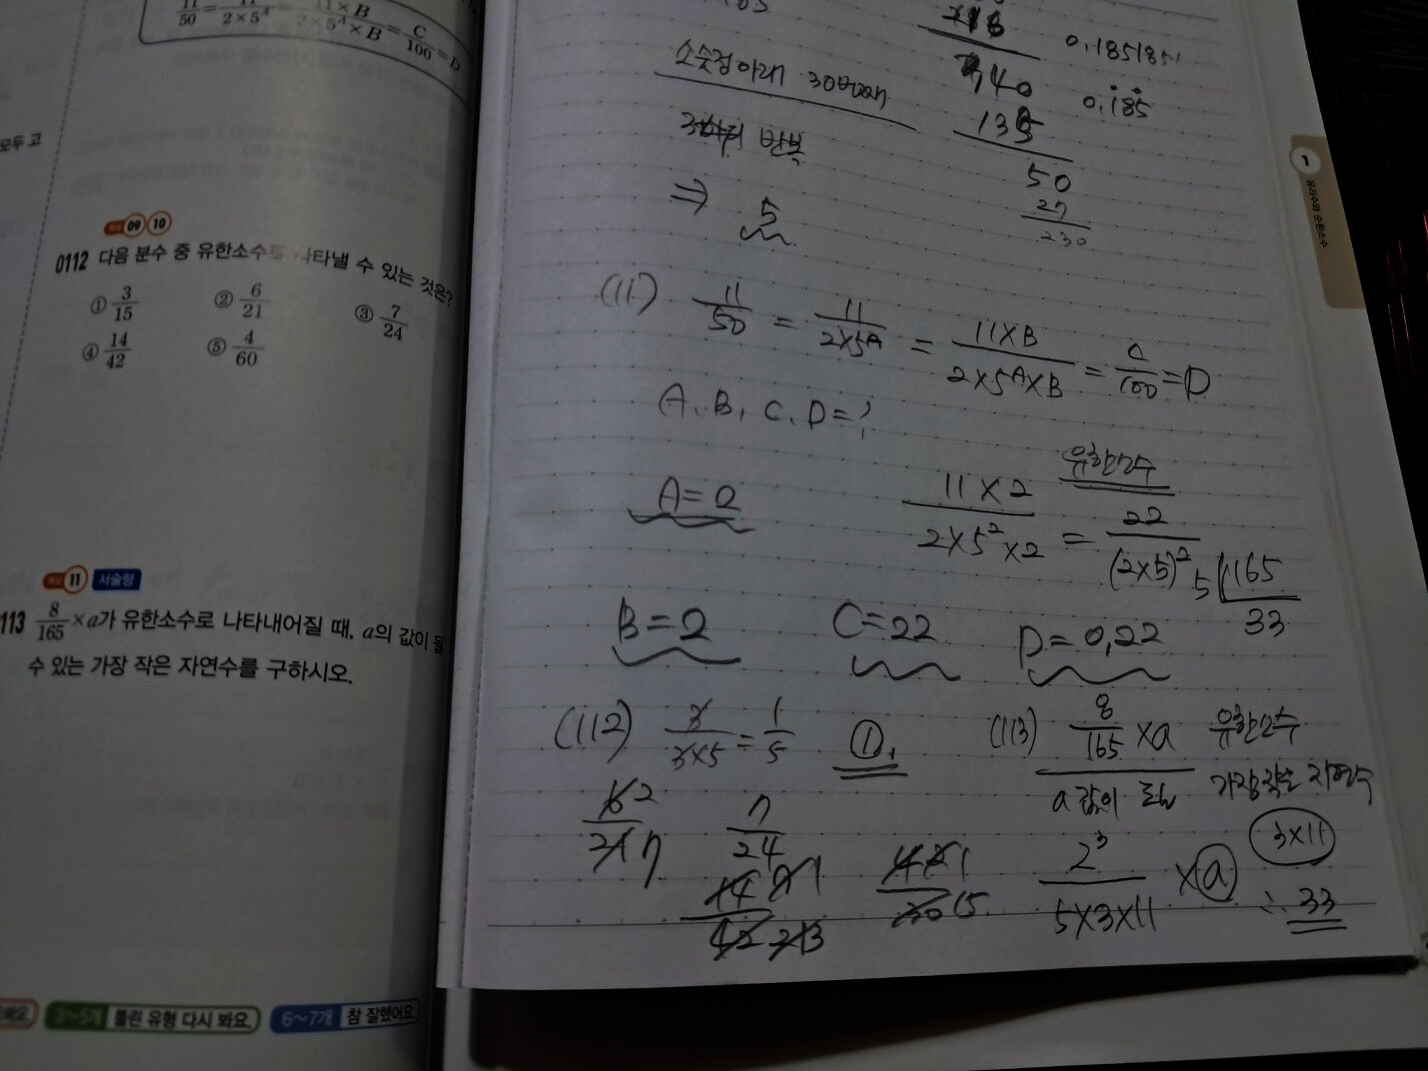 11/50 = 11/2×5^A = 11×B/2×5^A×B = C/100 = D
모두 고
09 10
0112 다음 분수 중 유한소수로 나타낼 수 있는 것은?
① 3/15 ② 6/21 ③ 7/24
④ 14/42 ⑤ 4/60
11 서술형
113 8/165 × a가 유한소수로 나타내어질 때, a의 값이 될
수 있는 가장 작은 자연수를 구하시오.
3~5개 틀린 유형 다시 봐요. 6~7개 참 잘했어요
1 유리수와 순환소수
216
0.185185
소숫점아래 30번째
40
0.1̇85̇
135
반복
50
27
230
⇒ 5
(11) 11/50 = 11/2×5^A = 11×B/2×5^A×B = C/100 = D
A, B, C, D = ?
유한소수
A=2
11×2/2×5²×2 = 22/(2×5)²
5 165
33
B=2 C=22 D=0,22
(112) 3/3×5 = 1/5 ①,
(113) 8/165 × a 유한소수
a값이 될 가장작은 자연수
6 2/21 7
7/24
14 2 1/42 21 3
4 2 1/30 15
2³/5×3×11 × a
3×11
∴ 33